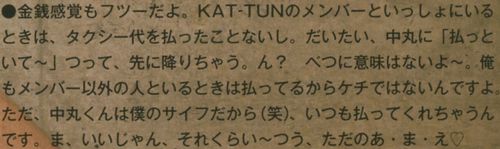 ●金銭感覚もフツーだよ。KAT-TUNのメンバーといっしょにいる
ときは、タクシー代を払ったことないし。だいたい、中丸に「払っと
いて〜」つって、先に降りちゃう。ん？　べつに意味はないよ〜。俺
もメンバー以外の人といるときは払ってるからケチではないんですよ。
ただ、中丸くんは僕のサイフだから(笑)、いつも払ってくれちゃうん
です。ま、いいじゃん、それくらい〜つう、ただのあ・ま・え♡